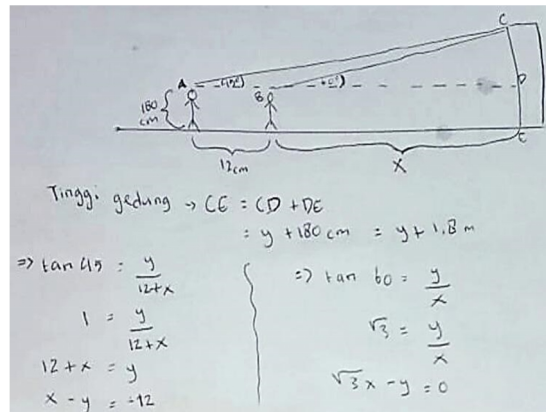 C
A 45° 60° D
B
180
cm
E
12cm X
Tinggi gedung → CE = CD + DE
= y + 180 cm = y + 1,8 m
=> tan 45 = y/12+x
1 = y/12+x
12+x = y
x - y = -12
=> tan 60 = y/x
√3 = y/x
√3x - y = 0